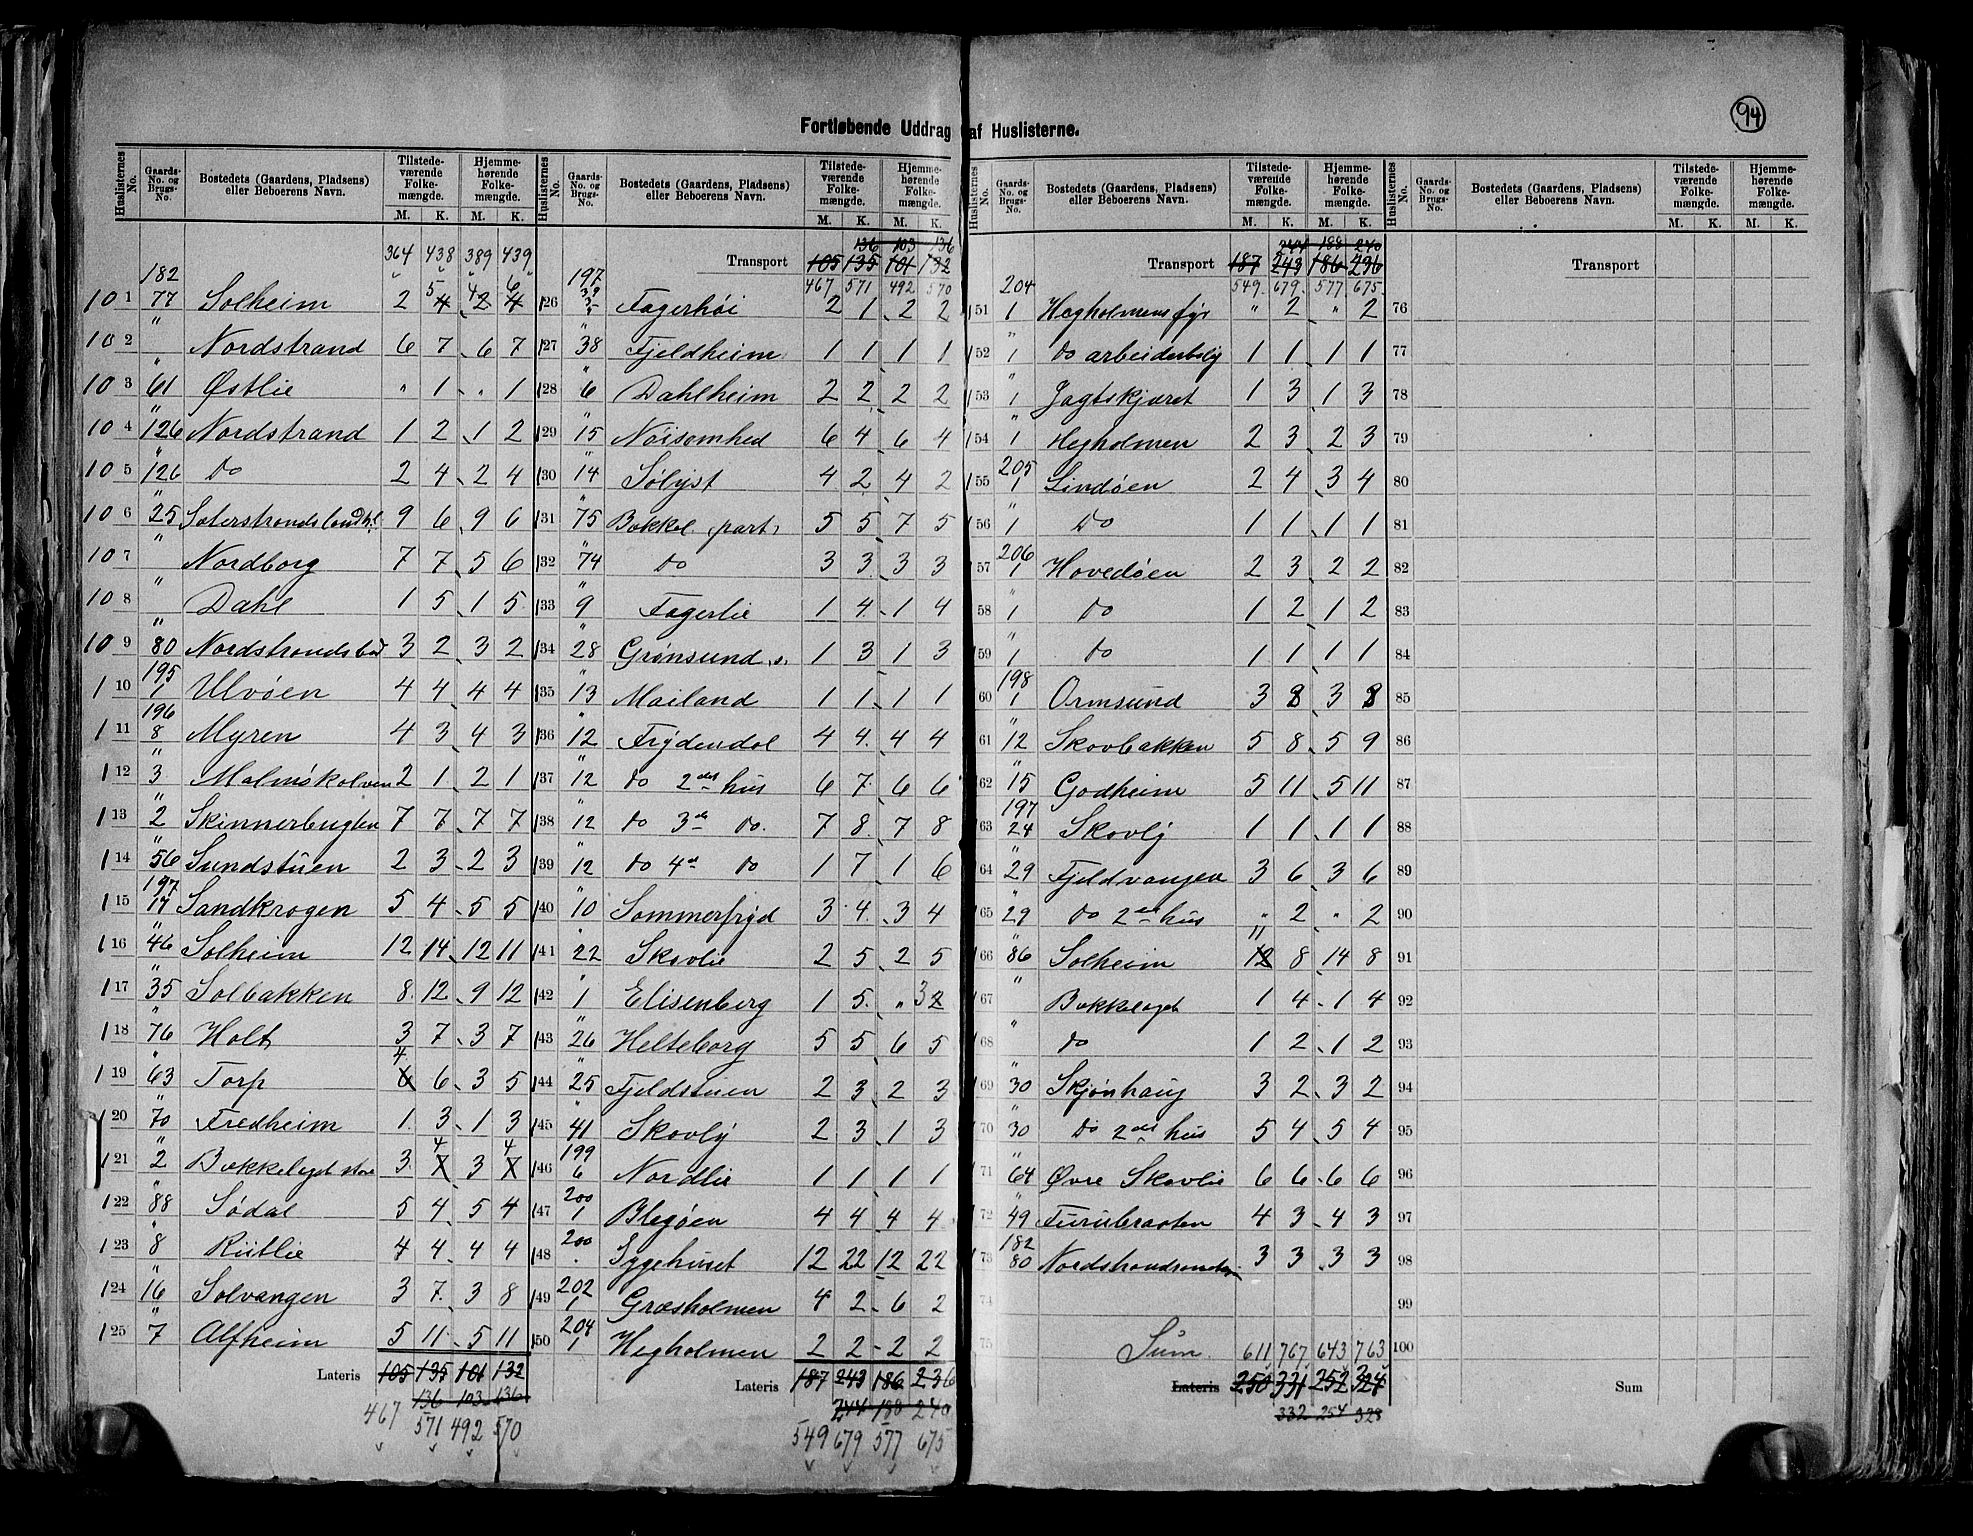 94
Fortløbende Uddrag af Huslisterne.
Huslisternes No. Gaards-No. og Brugs-No. Bostedets (Gaardens, Pladsens) eller Beboerens Navn. Tilstedeværende Folkemængde. M. K. Hjemmehørende Folkemængde. M. K.
364 438 389 439
101 182 77 Solheim 2 5 4 4 2 6 4
102 " Nordstrand 6 7 6 7
103 " 61 Østlie " 1 " 1
104 " 126 Nordstrand 1 2 1 2
105 " 126 Do 2 4 2 4
106 " 25 9 6 9 6
107 " Nordborg 7 7 5 6
108 " Dahl 1 5 1 5
109 " 80 Nordstrandsbad 3 2 3 2
110 195 1 Ulvøen 4 4 4 4
111 196 8 Myren 4 3 4 3
112 " 3 Malmøkalven 2 1 2 1
113 " 2 Skinnerbugten 7 7 7 7
114 " 56 Sundstuen 2 3 2 3
115 197 17 Sandkrogen 5 4 5 5
116 " 46 Solheim 12 14 12 11
117 " 35 Solbakken 8 12 9 12
118 " 76 Holt 3 7 3 7
119 " 63 Torp 4 6 6 3 5
120 " 70 Fredheim 1 3 1 3
121 " 2 Bækkelaget store 3 4 7 3 4 7
122 " 88 Sødal 5 4 5 4
123 " 8 Rütlie 4 4 4 4
124 " 16 Solvangen 3 7 3 8
125 " 7 Alfheim 5 11 5 11
Lateris 105 135 101 132
136 103 136
467 571 492 570
Huslisternes No. Gaards-No. og Brugs-No. Bostedets (Gaardens, Pladsens) eller Beboerens Navn. Tilstedeværende Folkemængde. M. K. Hjemmehørende Folkemængde. M. K.
136 103 136
Transport 105 135 101 132
467 571 492 570
126 197 Fagerhøi 2 1 2 2
127 " 38 Fjeldheim 1 1 1 1
128 " 6 Dahlheim 2 2 2 2
129 " 15 Nøisomhed 6 4 6 4
130 " 14 Sølyst 4 2 4 2
131 " 75 Bækkel. part 5 5 7 5
132 " 74 Do 3 3 3 3
133 " 9 Fagerlie 1 4 1 4
134 " 28 Grønsund s. 1 3 1 3
135 " 13 Mailand 1 1 1 1
136 " 12 Frydendal 4 4 4 4
137 " 12 do 2det hus 6 7 6 6
138 " 12 do 3de do. 7 8 7 8
139 " 12 do 4de do 1 7 1 6
140 " 10 Sommerfryd 3 4 3 4
141 " 22 Skovlie 2 5 2 5
142 " 1 Elisenberg 1 5 " 3 2
143 " 26 Helteborg 5 5 6 5
144 " 25 Fjeldstuen 2 3 2 3
145 " 41 Skovly 2 3 1 3
146 199 6 Nordlie 1 1 1 1
147 200 1 Blegøen 4 4 4 4
148 200 Sygehuset 12 22 12 22
149 202 1 Græsholmen 4 2 6 2
150 204 1 Hegholmen 2 2 2 2
Lateris 187 243 186 236
244 188 240
549 679 577 675
Huslisternes No. Gaards-No. og Brugs-No. Bostedets (Gaardens, Pladsens) eller Beboerens Navn. Tilstedeværende Folkemængde. M. K. Hjemmehørende Folkemængde. M. K.
244 188 240
Transport 187 243 186 236
549 679 577 675
151 204 1 Hegholmens fyr " 2 " 2
152 " 1 do arbeiderbolig 1 1 1 1
153 " 1 Jagtskjæret 1 3 1 3
154 " 1 Hegholmen 2 3 2 3
155 205 1 Lindøen 2 4 3 4
156 1 Do 1 1 1 1
157 206 1 Hovedøen 2 3 2 2
158 " 1 do 1 2 1 2
159 " 1 do 1 1 1 1
160 198 1 Ormsund 3 8 3 8
161 " 12 Skovbakken 5 8 5 9
162 " 15 Godheim 5 11 5 11
163 197 24 Skovly 1 1 1 1
164 " 29 Fjeldvangen 3 6 3 6
165 " 29 do 2det hus " 2 " 2
166 " 86 Solheim 11 12 8 14 8
167 " Bækkelaget 1 4 1 4
168 " do 1 2 1 2
169 " 30 Skjønhaug 3 2 3 2
170 " 30 Do 2det hus 5 4 5 4
171 " 64 Øvre Skovlie 6 6 6 6
172 " 49 Furubraaten 4 3 4 3
173 182 80 3 3 3 3
74
75 Sum 611 767 643 763
Lateris 250 331 252 324
332 254 328
Huslisternes No. Gaards-No. og Brugs-No. Bostedets (Gaardens, Pladsens) eller Beboerens Navn. Tilstedeværende Folkemængde. M. K. Hjemmehørende Folkemængde. M. K.
Transport
76
77
78
79
80
81
82
83
84
85
86
87
88
89
90
91
92
93
94
95
96
97
98
99
100
Sum